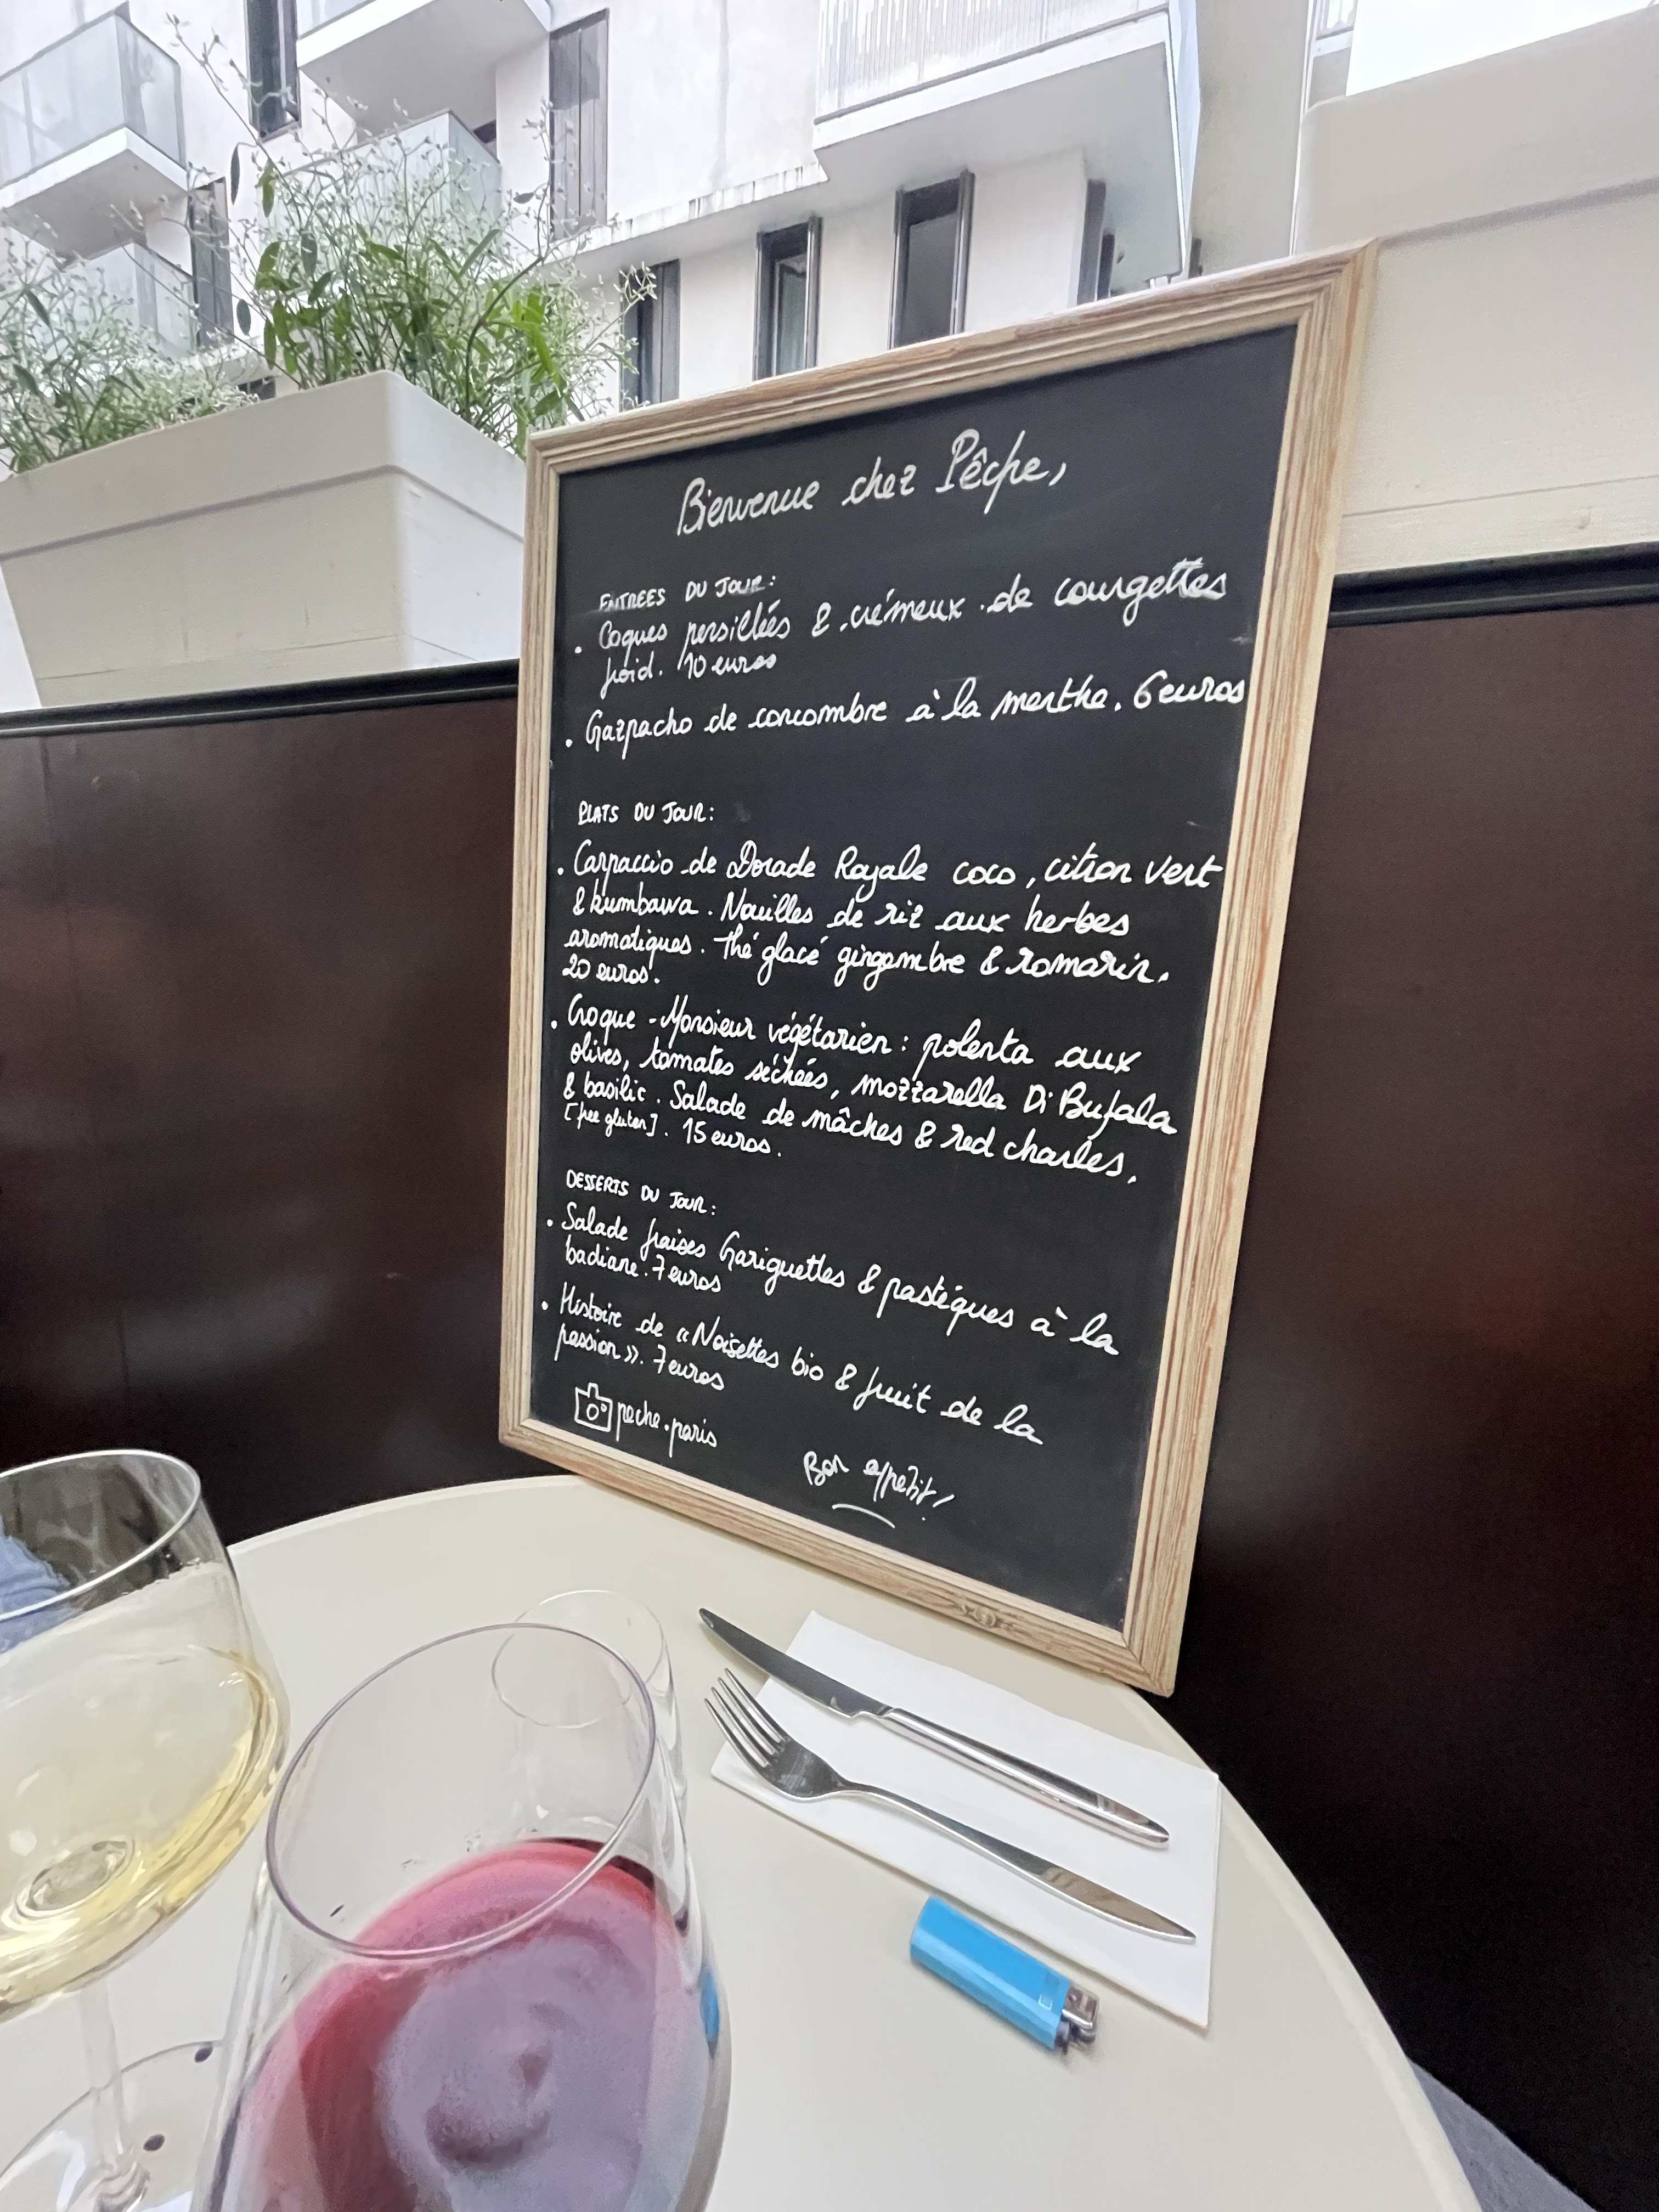 Bienvenue chez Pêche,
ENTREES DU JOUR:
• Coques persillées & crémeux de courgettes
froid. 10 euros
• Gazpacho de concombre à la menthe. 6 euros
PLATS DU JOUR:
• Carpaccio de Dorade Royale coco, citron vert
& kumbawa. Nouilles de riz aux herbes
aromatiques. Thé glacé gingembre & romarin.
20 euros.
• Croque-Monsieur végétarien: polenta aux
olives, tomates séchées, mozzarella Di Bufala
& basilic. Salade de mâches & red charles.
[free gluten]. 15 euros.
DESSERTS DU JOUR:
• Salade fraises Gariguettes & pastèques à la
badiane. 7 euros
• Histoire de « Noisettes bio & fruit de la
passion ». 7 euros
peche.paris
Bon appetit!